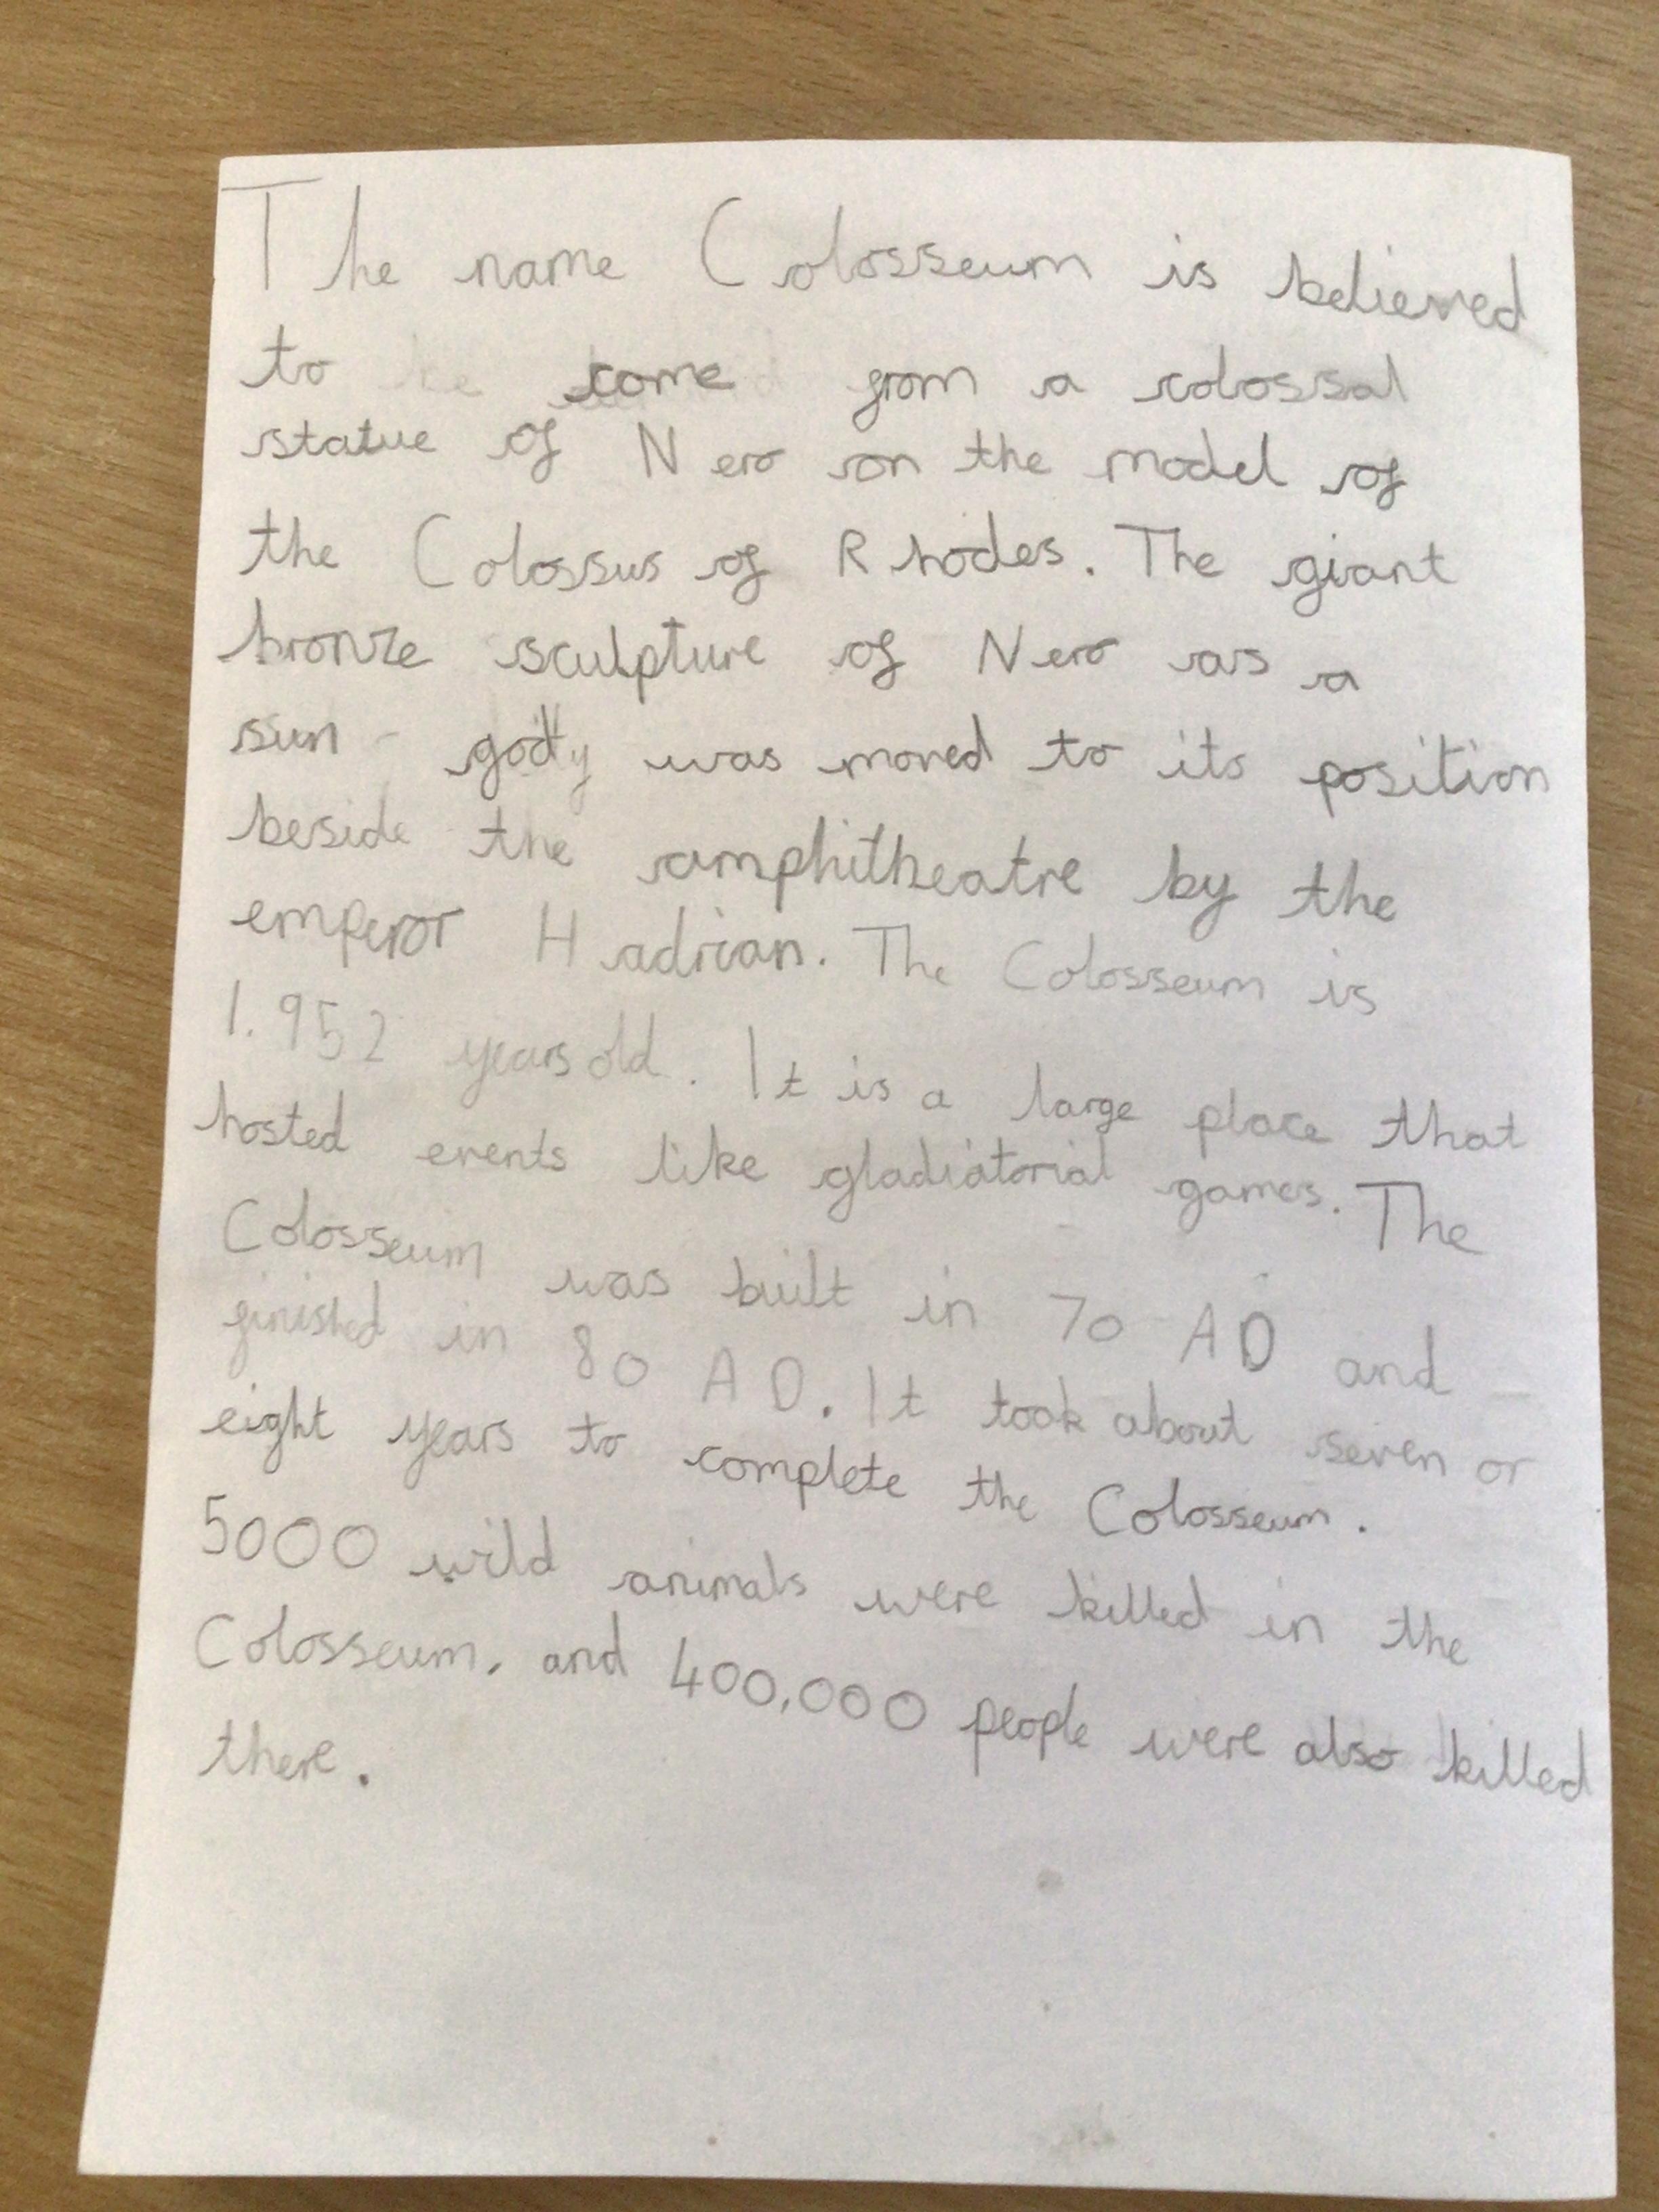 The name Colosseum is believed
to come from a colossal
statue of Nero on the model of
the Colossus of Rhodes. The giant
bronze sculpture of Nero as a
sun - god was moved to its position
beside the amphitheatre by the
emperor Hadrian. The Colosseum is
1.952 years old. It is a large place that
hosted events like gladiatorial games. The
Colosseum was built in 70 AD and
finished in 80 AD. It took about seven or
eight years to complete the Colosseum.
5000 wild animals were killed in the
Colosseum, and 400,000 people were also killed
there.